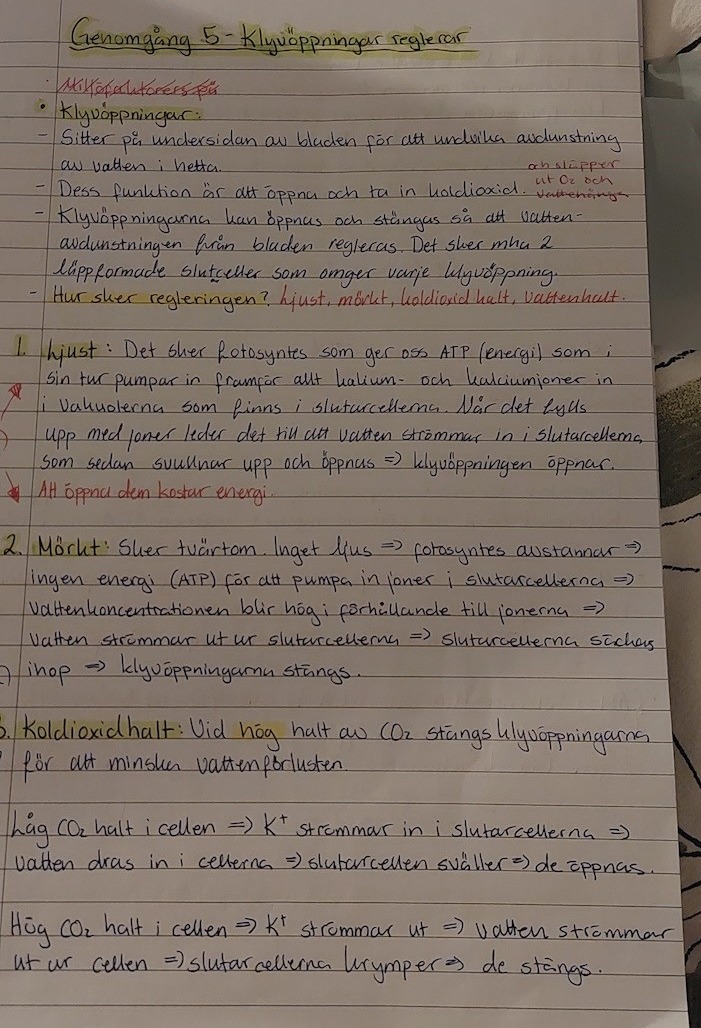 Genomgång 5 - Klyvöppningar reglerar
Miljöfaktorers på
• Klyvöppningar:
- Sitter på undersidan av bladen för att undvika avdunstning
av vatten i hetta.
- Dess funktion är att öppna och ta in koldioxid. och släpper
ut O2 och
vattenånga
- Klyvöppningarna kan öppnas och stängas så att vatten-
avdunstningen från bladen regleras. Det sker mha 2
läppformade slutceller som omger varje klyvöppning.
- Hur sker regleringen? Ljust, mörkt, koldioxidhalt, vattenhalt.
1. Ljust: Det sker fotosyntes som ger oss ATP (energi) som i
sin tur pumpar in framför allt kalium- och kalciumjoner in
i vakuolerna som finns i slutarcellerna. När det fylls
upp med joner leder det till att vatten strömmar in i slutarcellerna
som sedan svullnar upp och öppnas => klyvöppningen öppnar.
Att öppna dem kostar energi.
2. Mörkt: Sker tvärtom. Inget ljus => fotosyntes avstannar =>
ingen energi (ATP) för att pumpa in joner i slutarcellerna =>
vattenkoncentrationen blir hög i förhållande till jonerna =>
vatten strömmar ut ur slutarcellerna => slutarcellerna säckas
ihop => klyvöppningarna stängs.
3. Koldioxidhalt: Vid hög halt av CO2 stängs klyvöppningarna
för att minska vattenförlusten.
Låg CO2 halt i cellen => K+ strömmar in i slutarcellerna =>
vatten dras in i cellerna => slutarcellen sväller => de öppnas.
Hög CO2 halt i cellen => K+ strömmar ut => vatten strömmar
ut ur cellen => slutarcellerna krymper => de stängs.